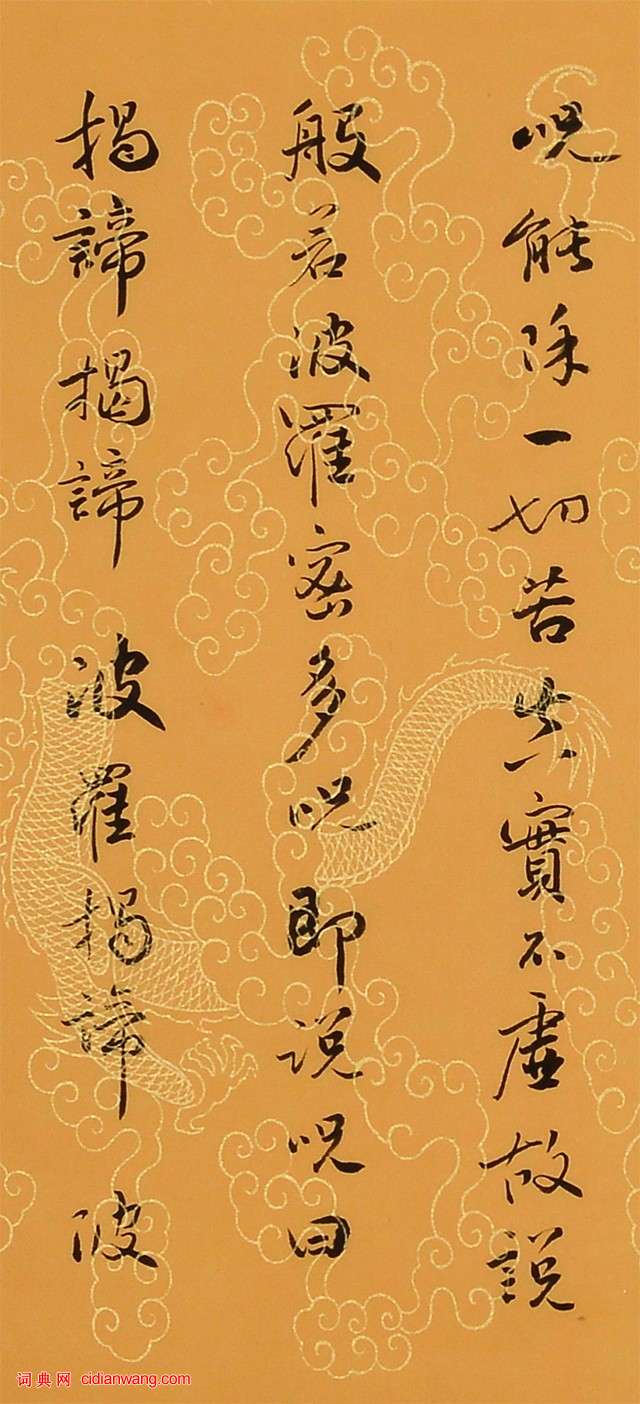 呪能除一切苦真實不虛故說
般若波羅密多呪即说呪曰
揭諦揭諦 波羅揭諦 波
词典网 cidianwang.com